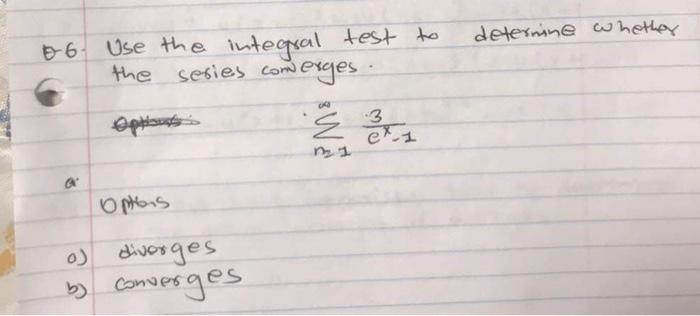 Q-6. Use the integral test to determine whether
the series converges.
Options:
∞
∑ 3/(e^x-1)
n=1
Options
a) diverges
b) converges